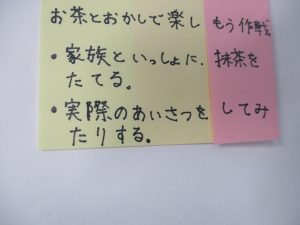 お茶とおかしで楽しもう作戦
・家族といっしょに、抹茶を
たてる。
・実際のあいさつをしてみ
たりする。